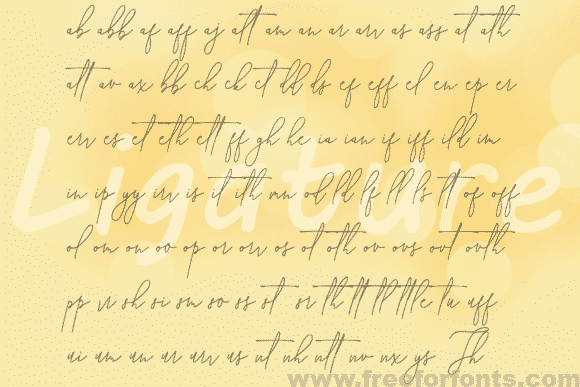 ab abb af aff aj alt am an ar arr as ass at ath
att av ax bb ch ck ct dd ds ef eff el en ep er
err es et eth ett ff gh he ia ian if iff ild im
in ip yy irr is it ith mn od ld lf ll ls lt of off
ol om on oo op or orr os ot oth ov ovs ovt ovth
pp rr sh si sm so os st or th tt tl ttle tu uff
ui um un ur urr us ut uh utt uv ux ys Th
Ligature
www.freeforfonts.com